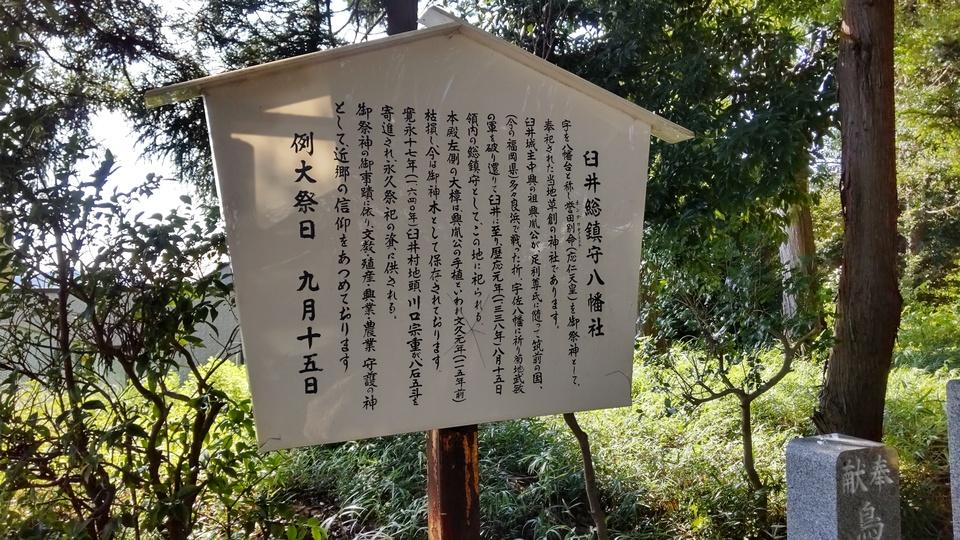 臼井総鎮守八幡社
字を八幡台と称し誉田別命(応仁天皇)を御祭神として、
奉祀された当地草創の神社であります。
臼井城主中興の祖興胤公が、足利尊氏に随って筑前の国、
(今の福岡県)多々良浜で戦った折、宇佐八幡に祈り菊地武敏
の軍を破り還りて臼井に至り歴応元年(一三三八年)八月十五日
領内の総鎮守として、この地に祀られる
本殿左側の大樟は興胤公の手植といわれ文久元年(一一五年前)
枯損し今は御神木として保存されております
寛永十七年(一六四〇年)臼井村地頭川口宗重が八石五斗を
寄進され永久祭祀の資に供される。
御祭神の御事蹟に依り文教・殖産・興業・農業守護の神
として近郷の信仰をあつめております
例大祭日 九月十五日
奉
献
鳥